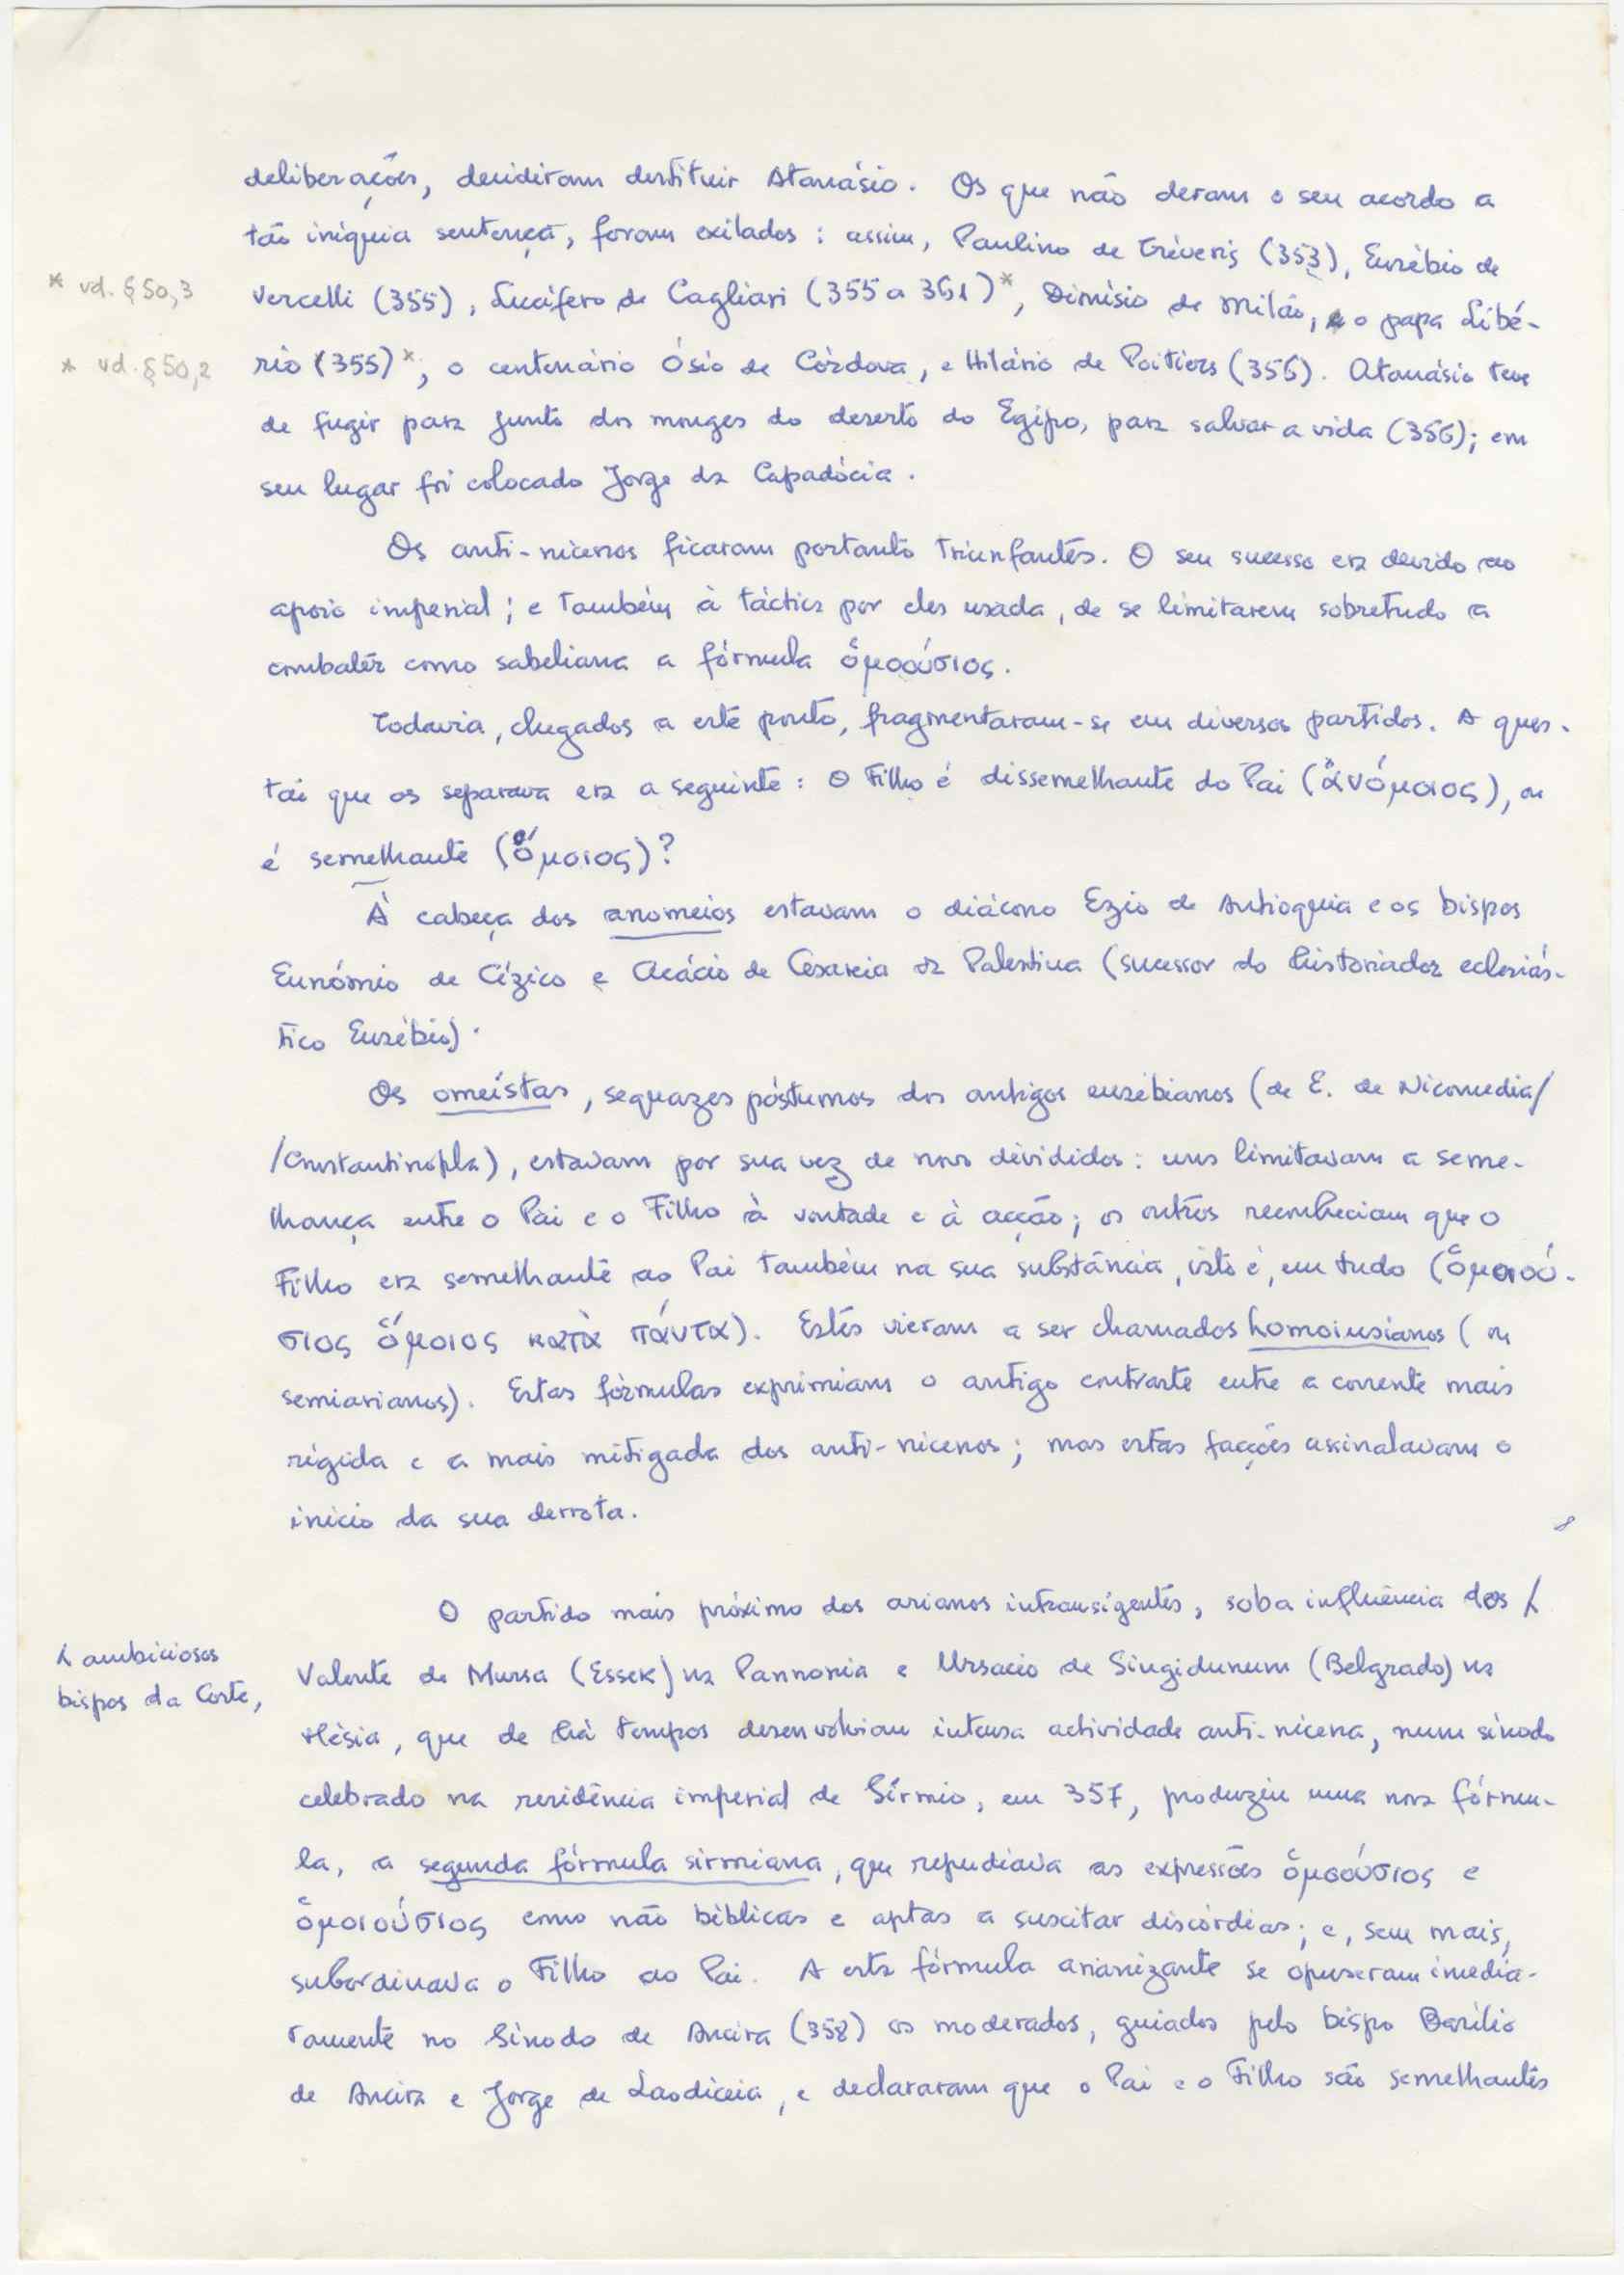 deliberações, decidiram destituir Atanásio. Os que não deram o seu acordo a
tão iníquia sentença, foram exilados : assim, Paulino de Tréveris (353), Eusébio de
* vd. § 50,3
Vercelli (355), Lucífero de Cagliari (355 a 361)*, Dionísio de Milão, o papa Libé-
* vd. § 50,2
rio (355)*, o centenário Ósio de Córdova, e Hilário de Poitiers (356). Atanásio teve
de fugir para junto dos monges do deserto do Egipo, para salvar a vida (356); em
seu lugar foi colocado Jorge da Capadócia.
Os anti-nicenos ficaram portanto triunfantes. O seu sucesso era devido ao
apoio imperial ; e também à táctica por eles usada, de se limitarem sobretudo a
combater como sabeliana a fórmula ὁμοούσιος.
Todavia, chegados a este ponto, fragmentaram-se em diversos partidos. A ques-
tão que os separava era a seguinte : O Filho é dissemelhante do Pai (ἀνόμοιος), ou
é semelhante (ὅμοιος)?
À cabeça dos anomeios estavam o diácono Ezio de Antioquia e os bispos
Eunómio de Cízico e Acácio de Cesareia da Palestina (sucessor do historiador eclesiás-
tico Eusébio).
Os omeístas, sequazes póstumos dos antigos eusébianos (de E. de Nicomedia/
/Constantinopla), estavam por sua vez de novo divididos : uns limitavam a seme-
lhança entre o Pai e o Filho à vontade e à acção; os outros reconheciam que o
Filho era semelhante ao Pai também na sua substância, isto é, em tudo (ὁμοιού-
σιος ὅμοιος κατὰ πάντα). Estes vieram a ser chamados homoiusianos ( ou
semiarianos). Estas fórmulas exprimiam o antigo contraste entre a corrente mais
rígida e a mais mitigada dos anti-nicenos ; mas estas facções assinalavam o
início da sua derrota.
O partido mais próximo dos arianos intransigentes, sob a influência dos
⅄ ambiciosos
bispos da Corte,
Valente de Mursa (Essek) na Pannonia e Ursacio de Singidunum (Belgrado) na
Mésia, que de há tempos desenvolviam intensa actividade anti-nicena, num sínodo
celebrado na residência imperial de Sírmio, em 357, produziu uma nova fórmu-
la, a segunda fórmula sirmiana, que repudiava as expressões ὁμοούσιος e
ὁμοιούσιος como não bíblicas e aptas a suscitar discórdias; e, sem mais,
subordinava o Filho ao Pai. A esta fórmula arianizante se opuseram imedia-
tamente no Sínodo de Ancira (358) os moderados, guiados pelo bispo Basílio
de Ancira e Jorge de Laodiceia, e declararam que o Pai e o Filho são semelhantes